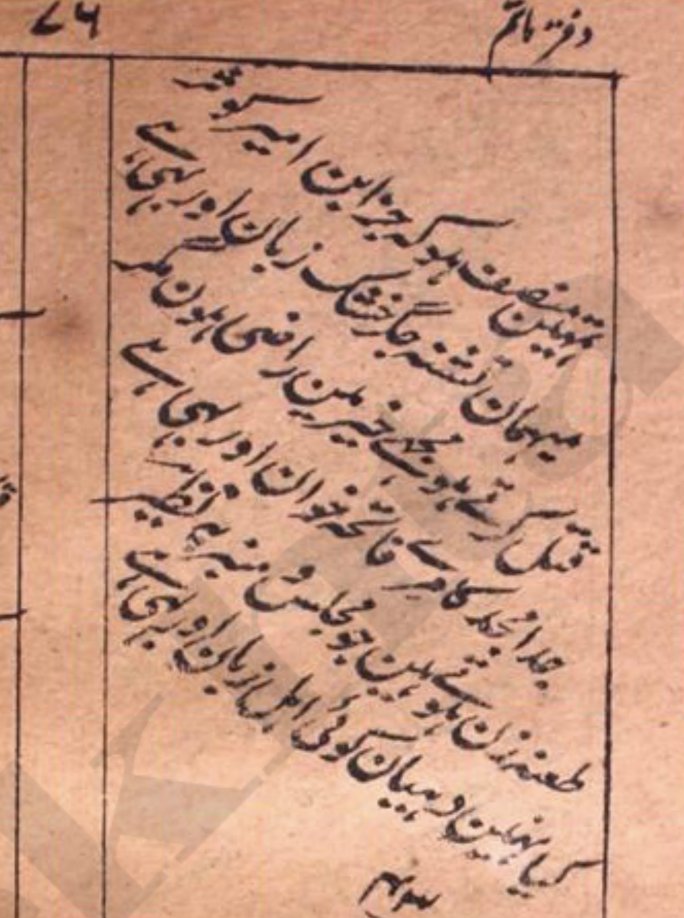 دفتر ماتم
۷۶
تمہیں منصف ہو کہ جز ابن امیر کوثر
میہمان تشنہ جگر خشک زبان اور بہی ہے
قتل کرتے ہو مجھے خیر میں راضی ہوں مگر
جد امجد کا مرے فاتحہ خوان اور بہی ہے
طعنہ زن ہوتے ہین جو مجلس و منبر پہ نظیر
کیا نہین دہیان کوئی اہل زبان اور بہی ہے
۴۳